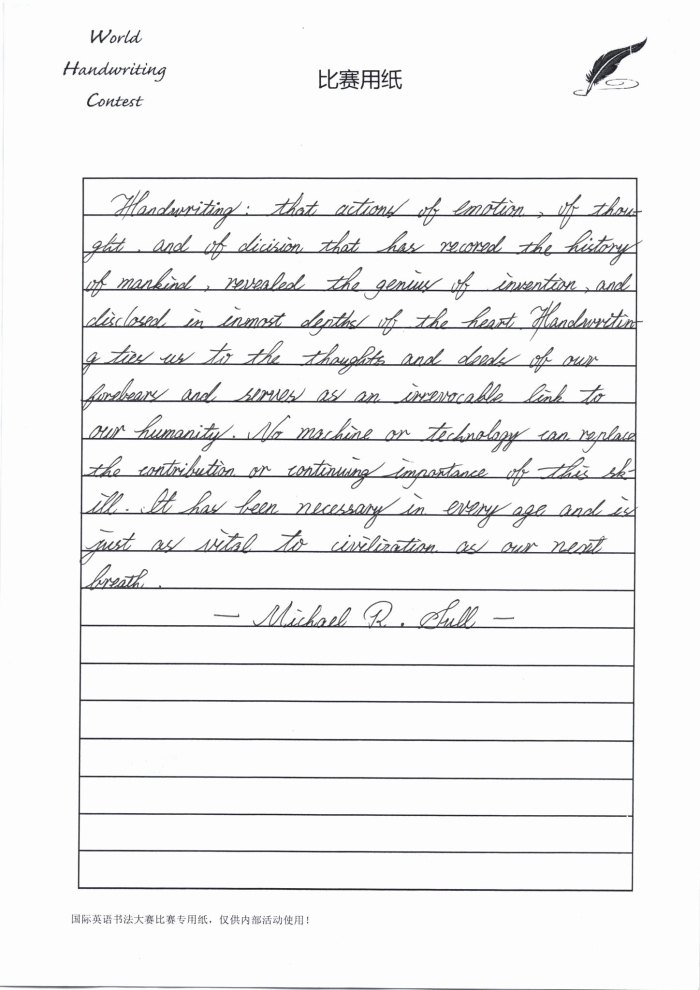 World
Handwriting
Contest
比赛用纸
Handwriting: that actions of emotion, of thou-
ght. and of dicision that has recored the history
of mankind, revealed the genius of invention, and
disclosed in inmost depths of the heart. Handwritin
g ties us to the thoughts and deeds of our
forebears and serves as an irrevocable link to
our humanity. No machine or technology can replace
the contribution or continuing importance of this sk-
ill. It has been necessary in every age and is
just as vital to civilization as our next
breath.
— Michael R. Sull —
国际英语书法大赛比赛专用纸，仅供内部活动使用！